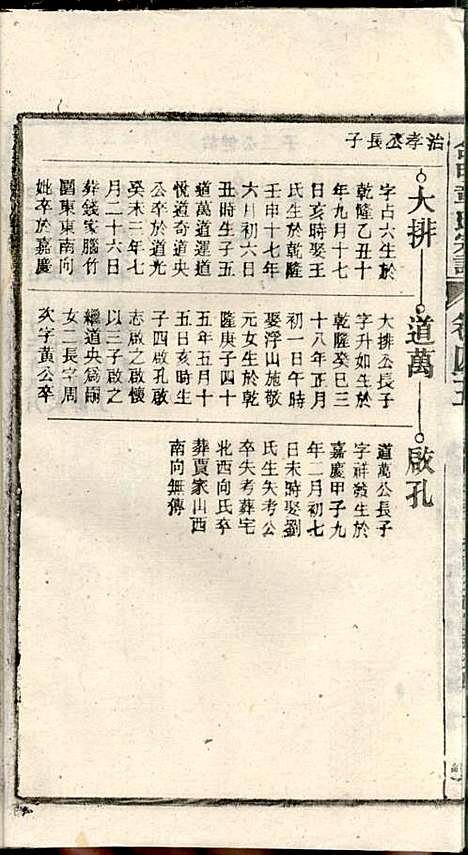 治孝公長子
大排
字占六生於
乾隆乙丑十
年九月十七
日亥時娶王
氏生於乾隆
甲申十七年
六月初六日
丑時生子五
道萬道運道
悅道奇道央
公卒於道光
癸未三年七
月二十六日
葬錢家腦竹
園東東南向
妣卒於嘉慶
道萬
大排公長子
字升如生於
乾隆癸巳三
十八年正月
初一日午時
娶浮山施敬
元女生於乾
隆庚子四十
五年五月十
五日亥時生
子四啟孔啟
志啟之啟懷
以三子啟之
繼道央爲嗣
女二長字周
次字黃公卒
啟孔
道萬公長子
字祥發生於
嘉慶甲子九
年二月初七
日未時娶劉
氏生失考公
卒失考葬宅
北西向氏卒
葬賈家山西
南向無傳